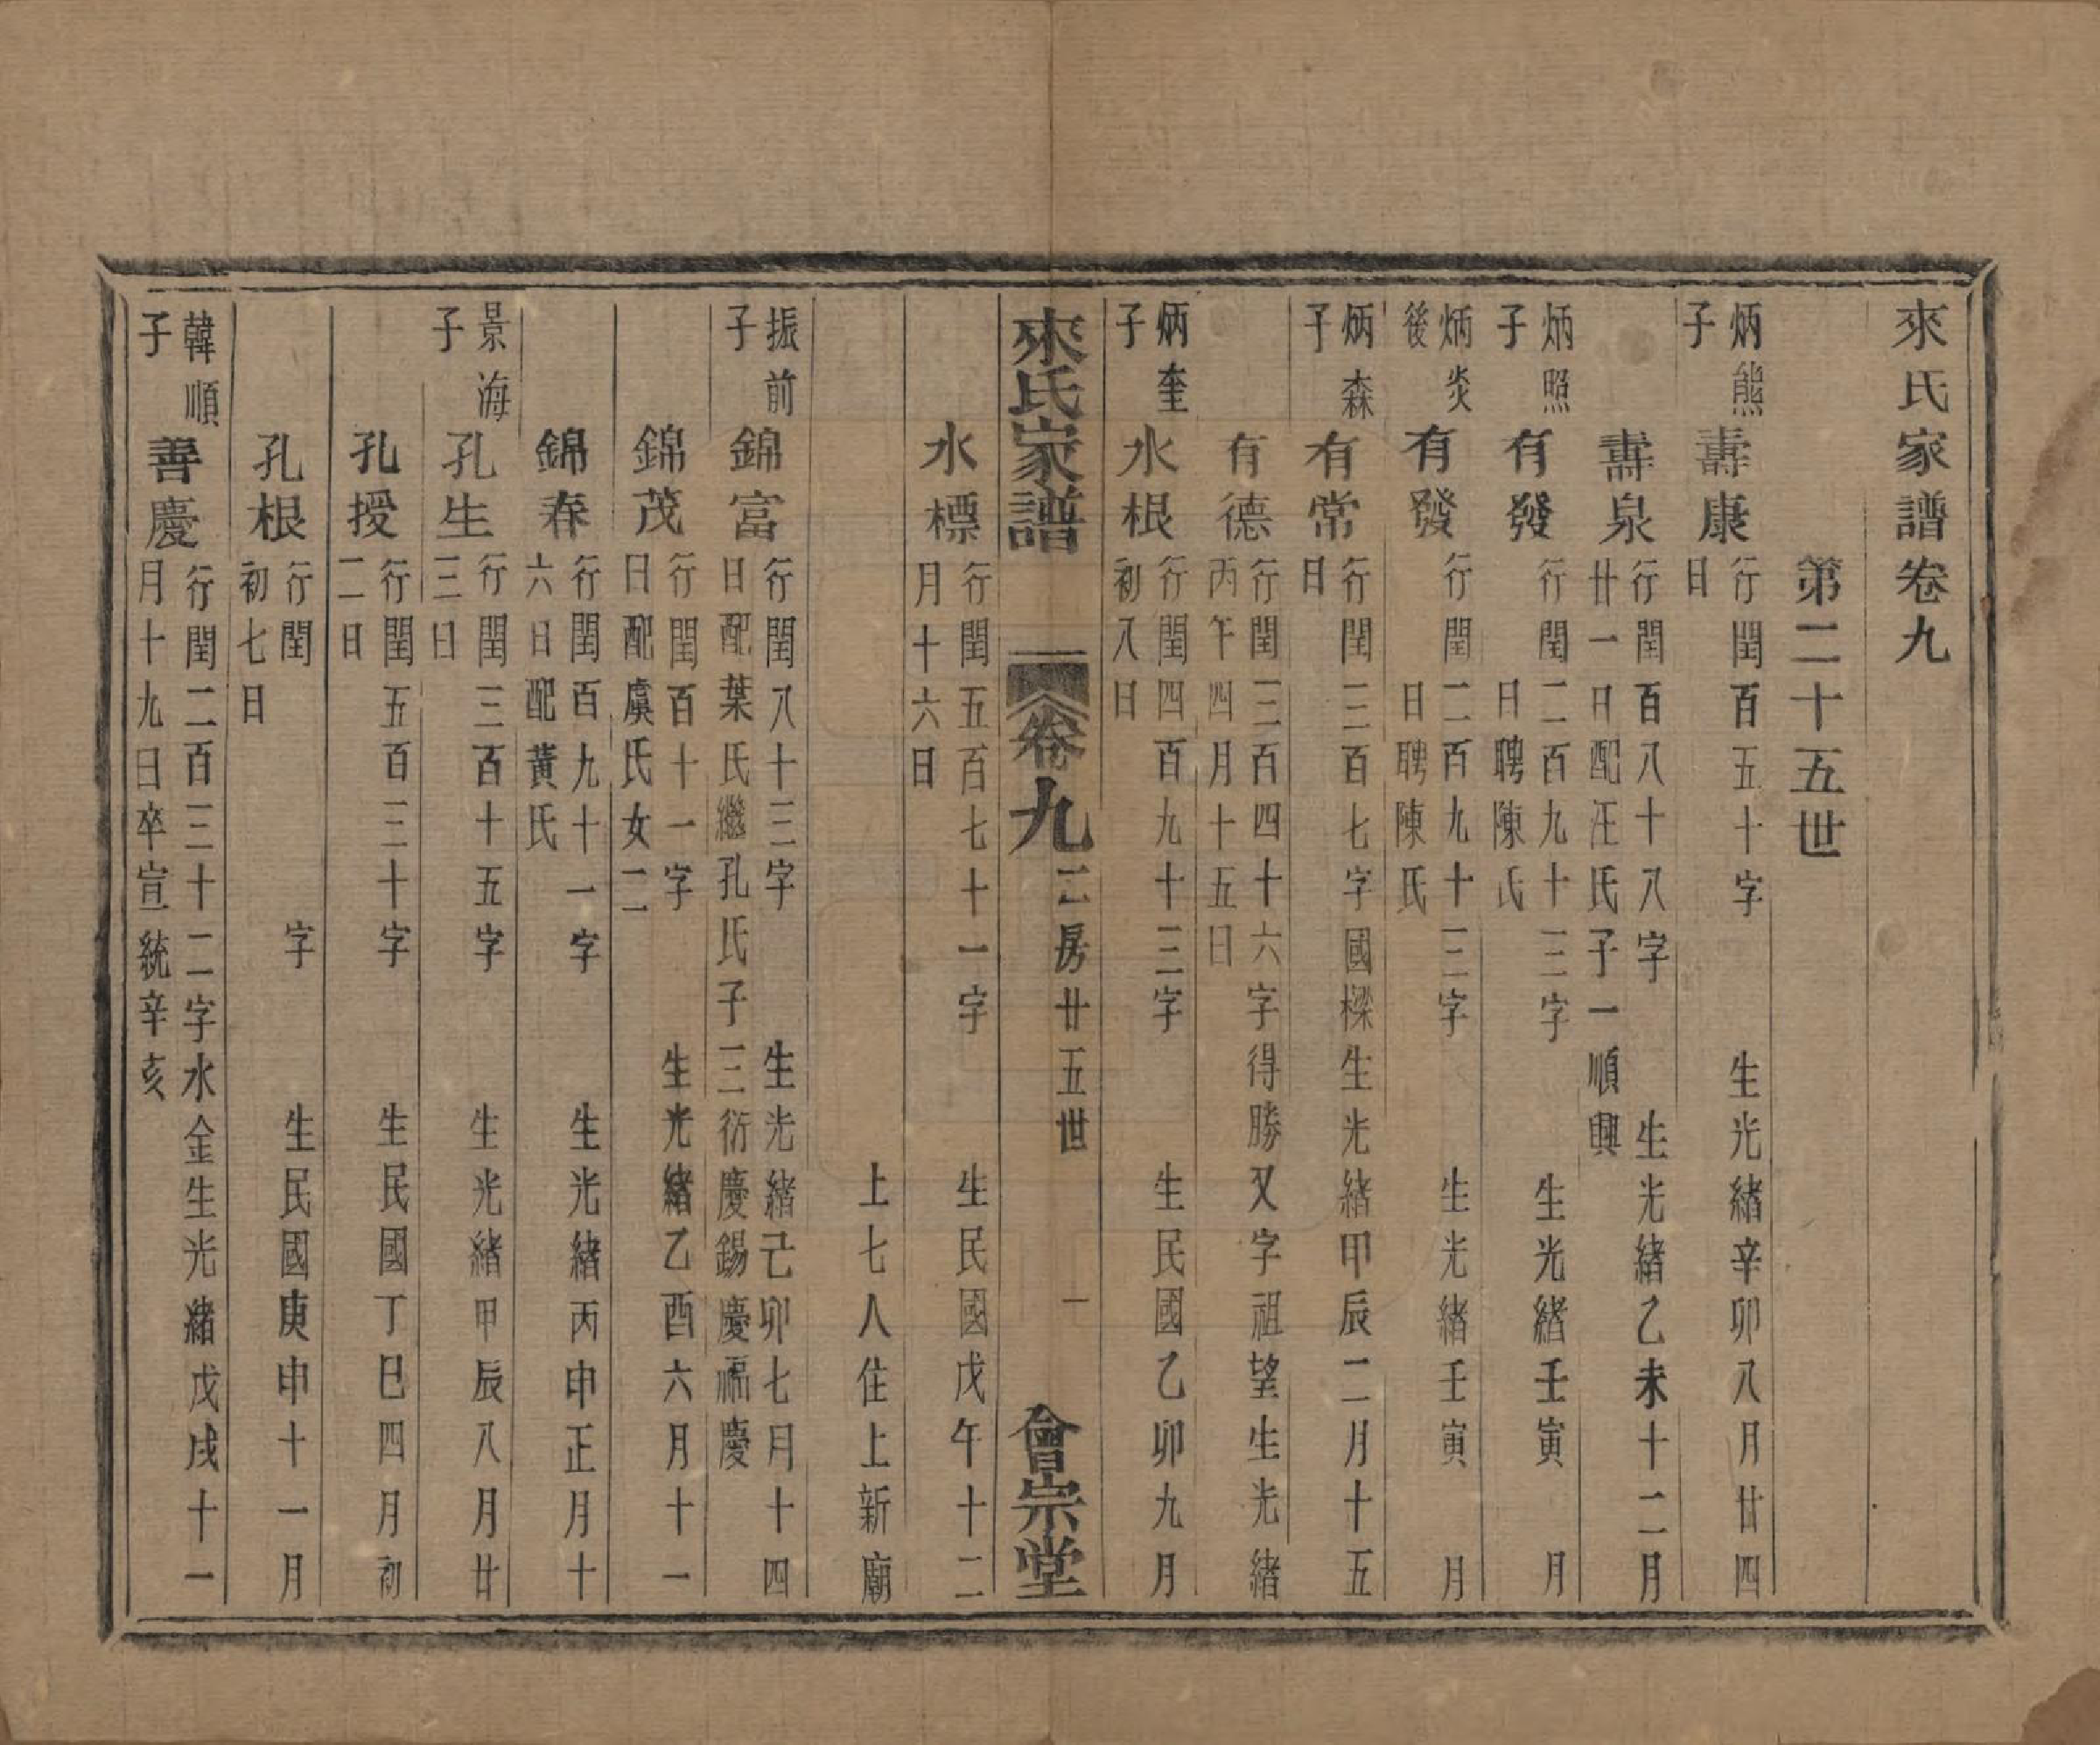 來氏家譜卷九
第二十五世
炳熊
子
壽康
行閏百五十字 生光緒辛卯八月廿四
日
壽泉
行閏百八十八字 生光緒乙未十二月
廿一日配汪氏子一順興
炳照
子
有發
行閏二百九十三字 生光緒壬寅 月
日聘陳氏
炳炎
後
有發
行閏二百九十三字 生光緒壬寅 月
日聘陳氏
炳森
子
有常
行閏三百七字國樑生光緒甲辰二月十五
日
有德
行閏三百四十六字得勝又字祖望生光緒
丙午四月十五日
炳奎
子
水根
行閏四百九十三字 生民國乙卯九月
初八日
來氏家譜
卷九
二房廿五世
一
會宗堂
水標
行閏五百七十一字 生民國戊午十二
月十六日
上七人住上新廟
振前
子
錦富
行閏八十三字 生光緒己卯七月十四
日配葉氏繼孔氏子三衍慶錫慶福慶
錦茂
行閏百十一字 生光緒乙酉六月十一
日配虞氏女二
錦春
行閏百九十一字 生光緒丙申正月十
六日配黃氏
景海
子
孔生
行閏三百十五字 生光緒甲辰八月廿
三日
孔授
行閏五百三十字 生民國丁巳四月初
二日
孔根
行閏 字 生民國庚申十一月
初七日
韓順
子
善慶
行閏二百三十二字水金生光緒戊戌十一
月十九日卒宣統辛亥